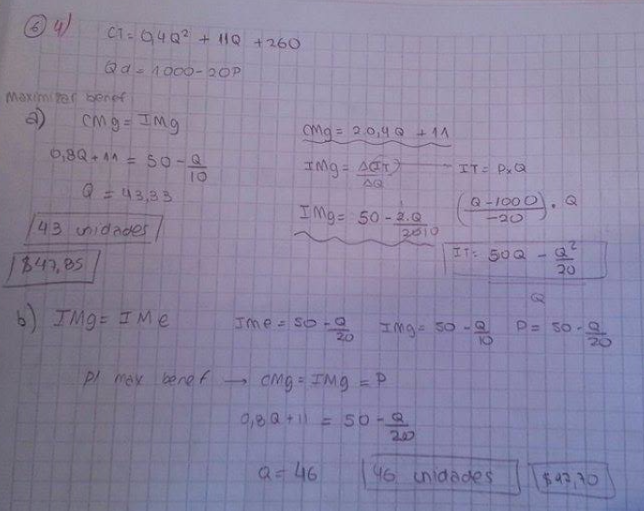 6 4) CT= 0,4Q² + 11Q + 260
Qd = 1000 - 20P
Maximizar benef
a) CMg = IMg
0,8Q + 11 = 50 - Q/10
Q = 43,33
43 unidades
$47,85
CMg = 2.0,4Q + 11
IMg = Δ(IT)/ΔQ IT = P×Q
IMg = 50 - 2.Q/20 10
(Q-1000/-20) . Q
IT: 50Q - Q²/20
Q
b) IMg = IMe Ime = 50 - Q/20 IMg = 50 - Q/10 P = 50 - Q/20
p/ max benef → CMg = IMg = P
0,8Q + 11 = 50 - Q/20
Q = 46 46 unidades $47,70